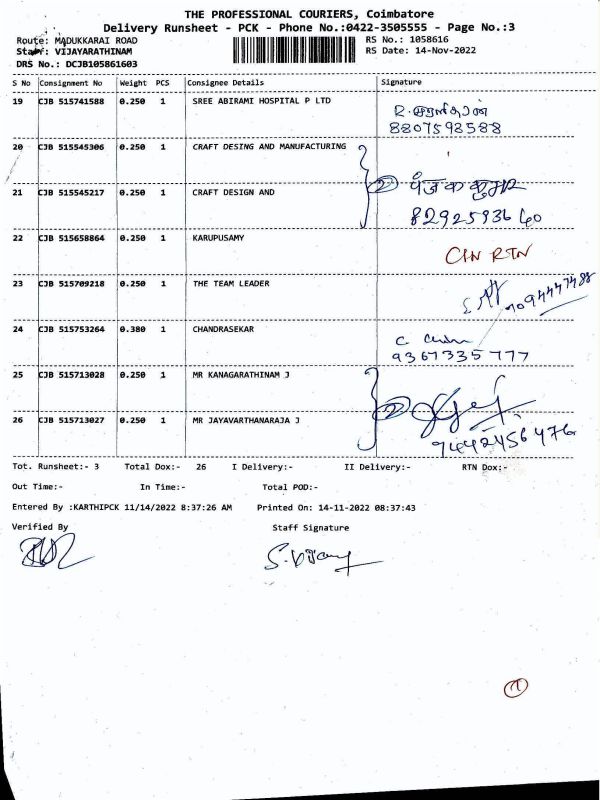 THE PROFESSIONAL COURIERS, Coimbatore
Delivery Runsheet - PCK - Phone No.:0422-3505555 - Page No.:3
Route: MADUKKARAI ROAD RS No.: 1058616
Staff: VIJAYARATHINAM RS Date: 14-Nov-2022
DRS No.: DCJB105861603
S No Consignment No Weight PCS Consignee Details Signature
19 CJB 515741588 0.250 1 SREE ABIRAMI HOSPITAL P LTD
8807598588
20 CJB 515545306 0.250 1 CRAFT DESING AND MANUFACTURING
② पंजक कुमार
21 CJB 515545217 0.250 1 CRAFT DESIGN AND
8292593640
22 CJB 515658864 0.250 1 KARUPUSAMY
CIN RTN
23 CJB 515709218 0.250 1 THE TEAM LEADER
24 CJB 515753264 0.380 1 CHANDRASEKAR
9367335777
25 CJB 515713028 0.250 1 MR KANAGARATHINAM J
②
26 CJB 515713027 0.250 1 MR JAYAVARTHANARAJA J
9442456476
Tot. Runsheet:- 3 Total Dox:- 26 I Delivery:- II Delivery:- RTN Dox:-
Out Time:- In Time:- Total POD:-
Entered By :KARTHIPCK 11/14/2022 8:37:26 AM Printed On: 14-11-2022 08:37:43
Verified By Staff Signature
①